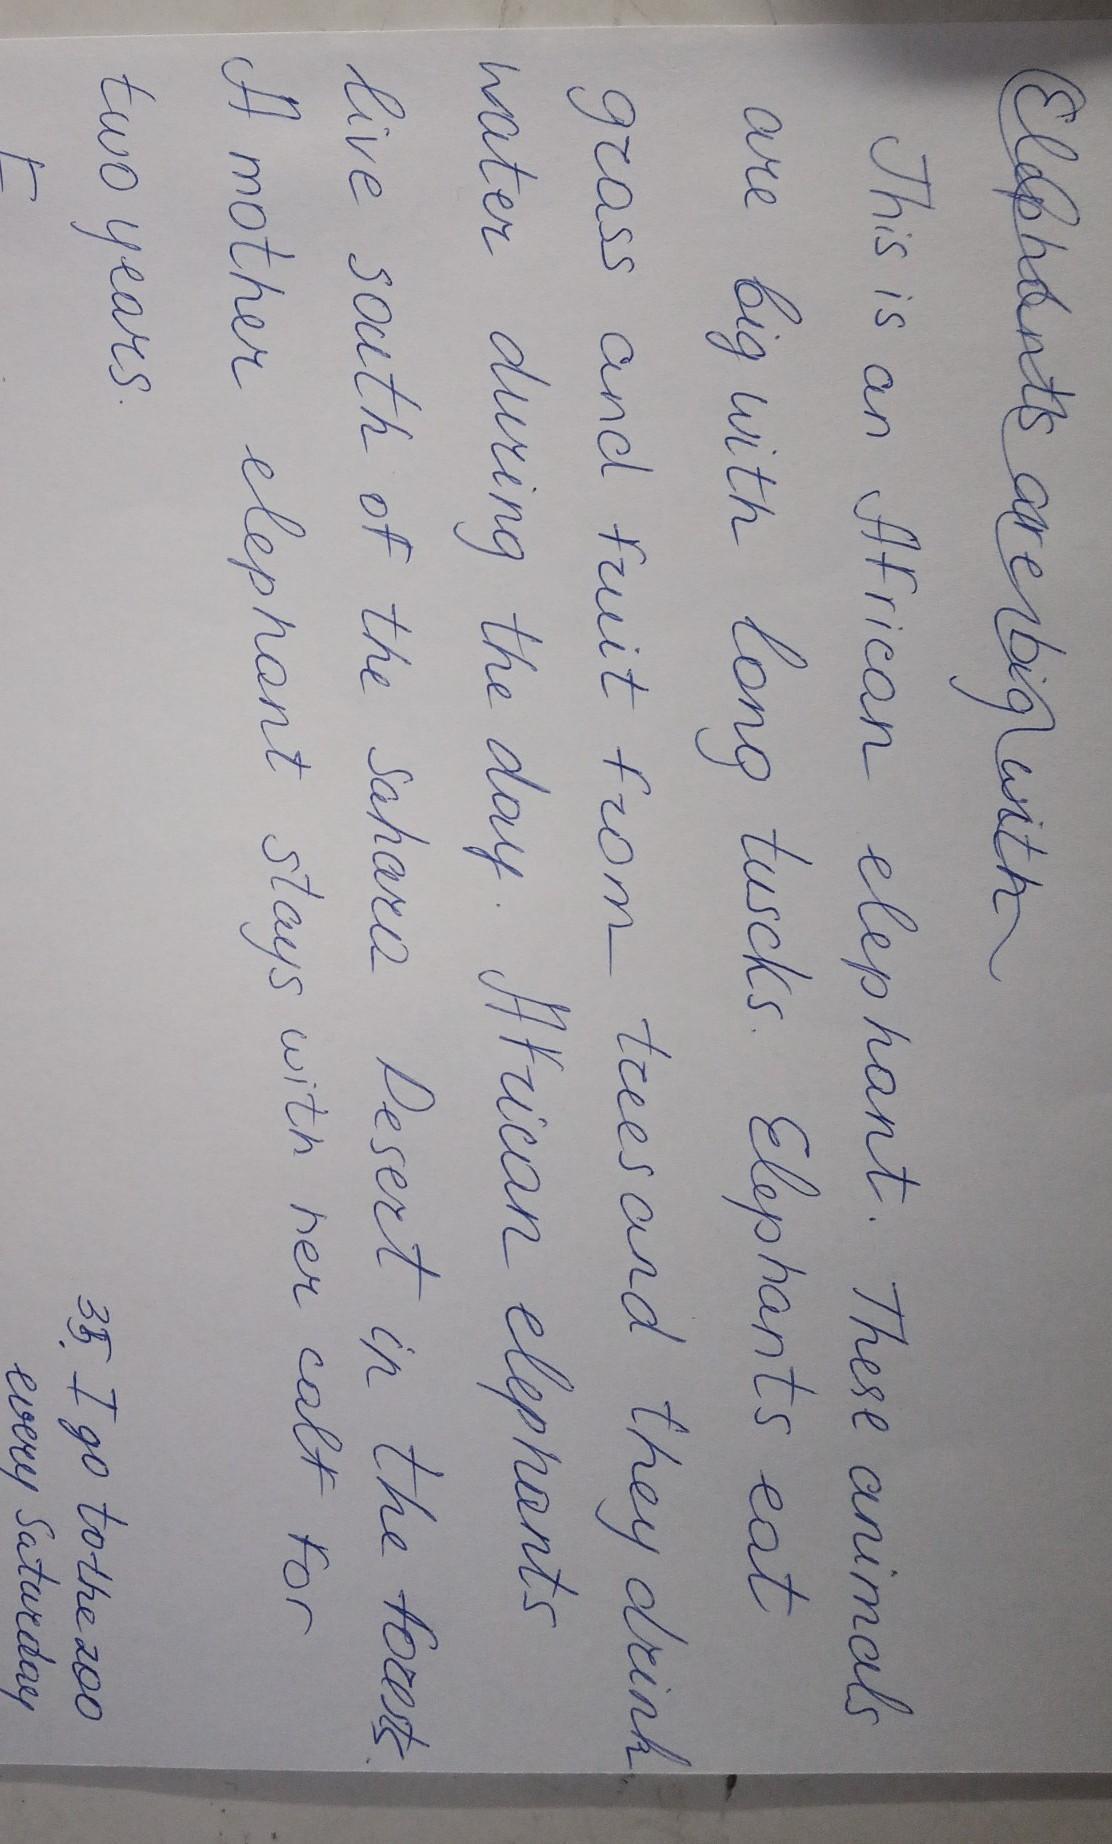 Elephants are big with
This is an African elephant. These animals
are big with long tuscks. Elephants eat
grass and fruit from trees and they drink
water during the day. African elephants
live south of the sahara Desert in the forest.
A mother elephant stays with her calf for
two years.
35. I go to the zoo
every Saturday